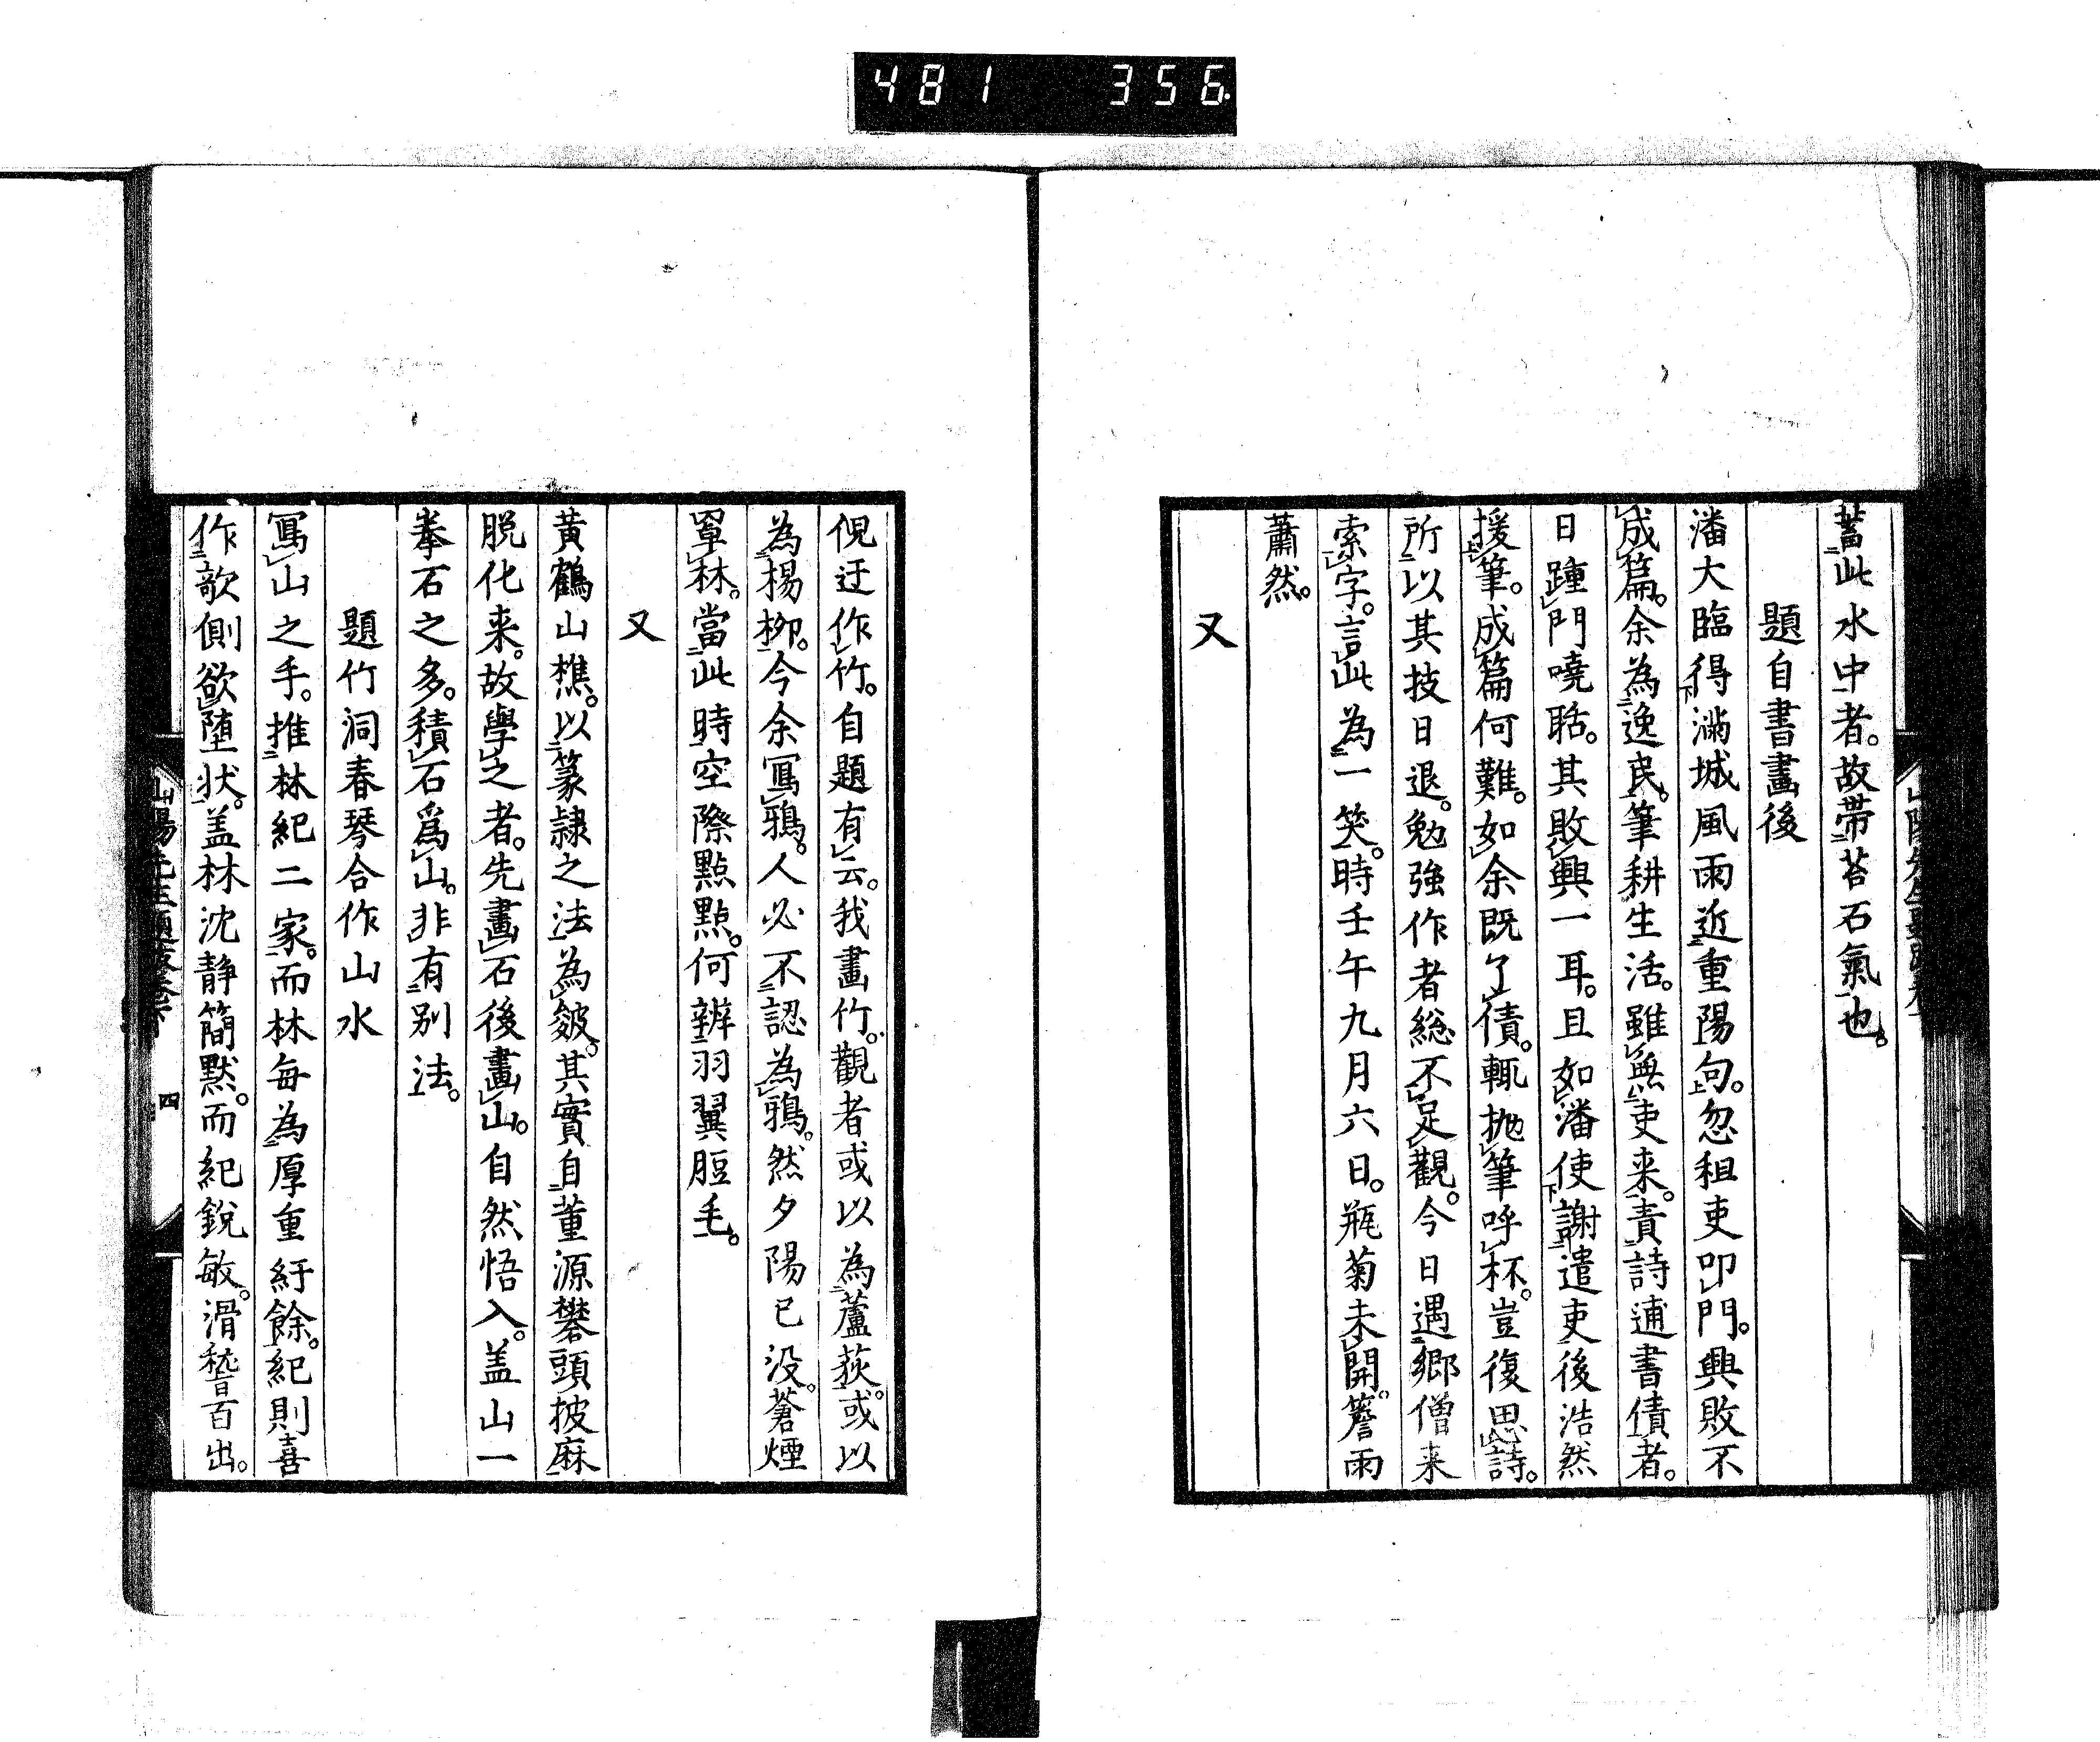 481 356
蓄此水中者。故帶苔石氣也。
題自書畫後
潘大臨得滿城風雨近重陽句。忽租吏叩門。興敗不
成篇。余為逸民。筆耕生活。雖無吏来。責詩逋書債者。
日踵門嘵聒。其敗興一耳。且如潘使謝遣吏後浩然
援筆。成篇何難。如余既了債。輒抛筆呼杯。豈復思詩。
所以其技日退。勉強作者総不足觀。今日遇郷僧来
索字。言此為一笑。時壬午九月六日。瓶菊未開。簷雨
蕭然。
又
倪迂作竹。自題有云。我畫竹。觀者或以為蘆荻。或以
為楊柳。今余寫鴉。人必不認為鴉。然夕陽已没。蒼煙
罩林。當此時空際點點。何辨羽翼脰毛。
又
黃鶴山樵。以篆隷之法為皴。其實自董源礬頭披麻
脱化来。故學之者。先畫石後畫山。自然悟入。盖山一
拳石之多。積石爲山。非有別法。
題竹洞春琴合作山水
寫山之手。推林紀二家。而林每為厚重紆餘。紀則喜
作欹側欲堕状。盖林沈静簡黙。而紀鋭敏。滑稽百出。
山陽先生題跋卷下 四